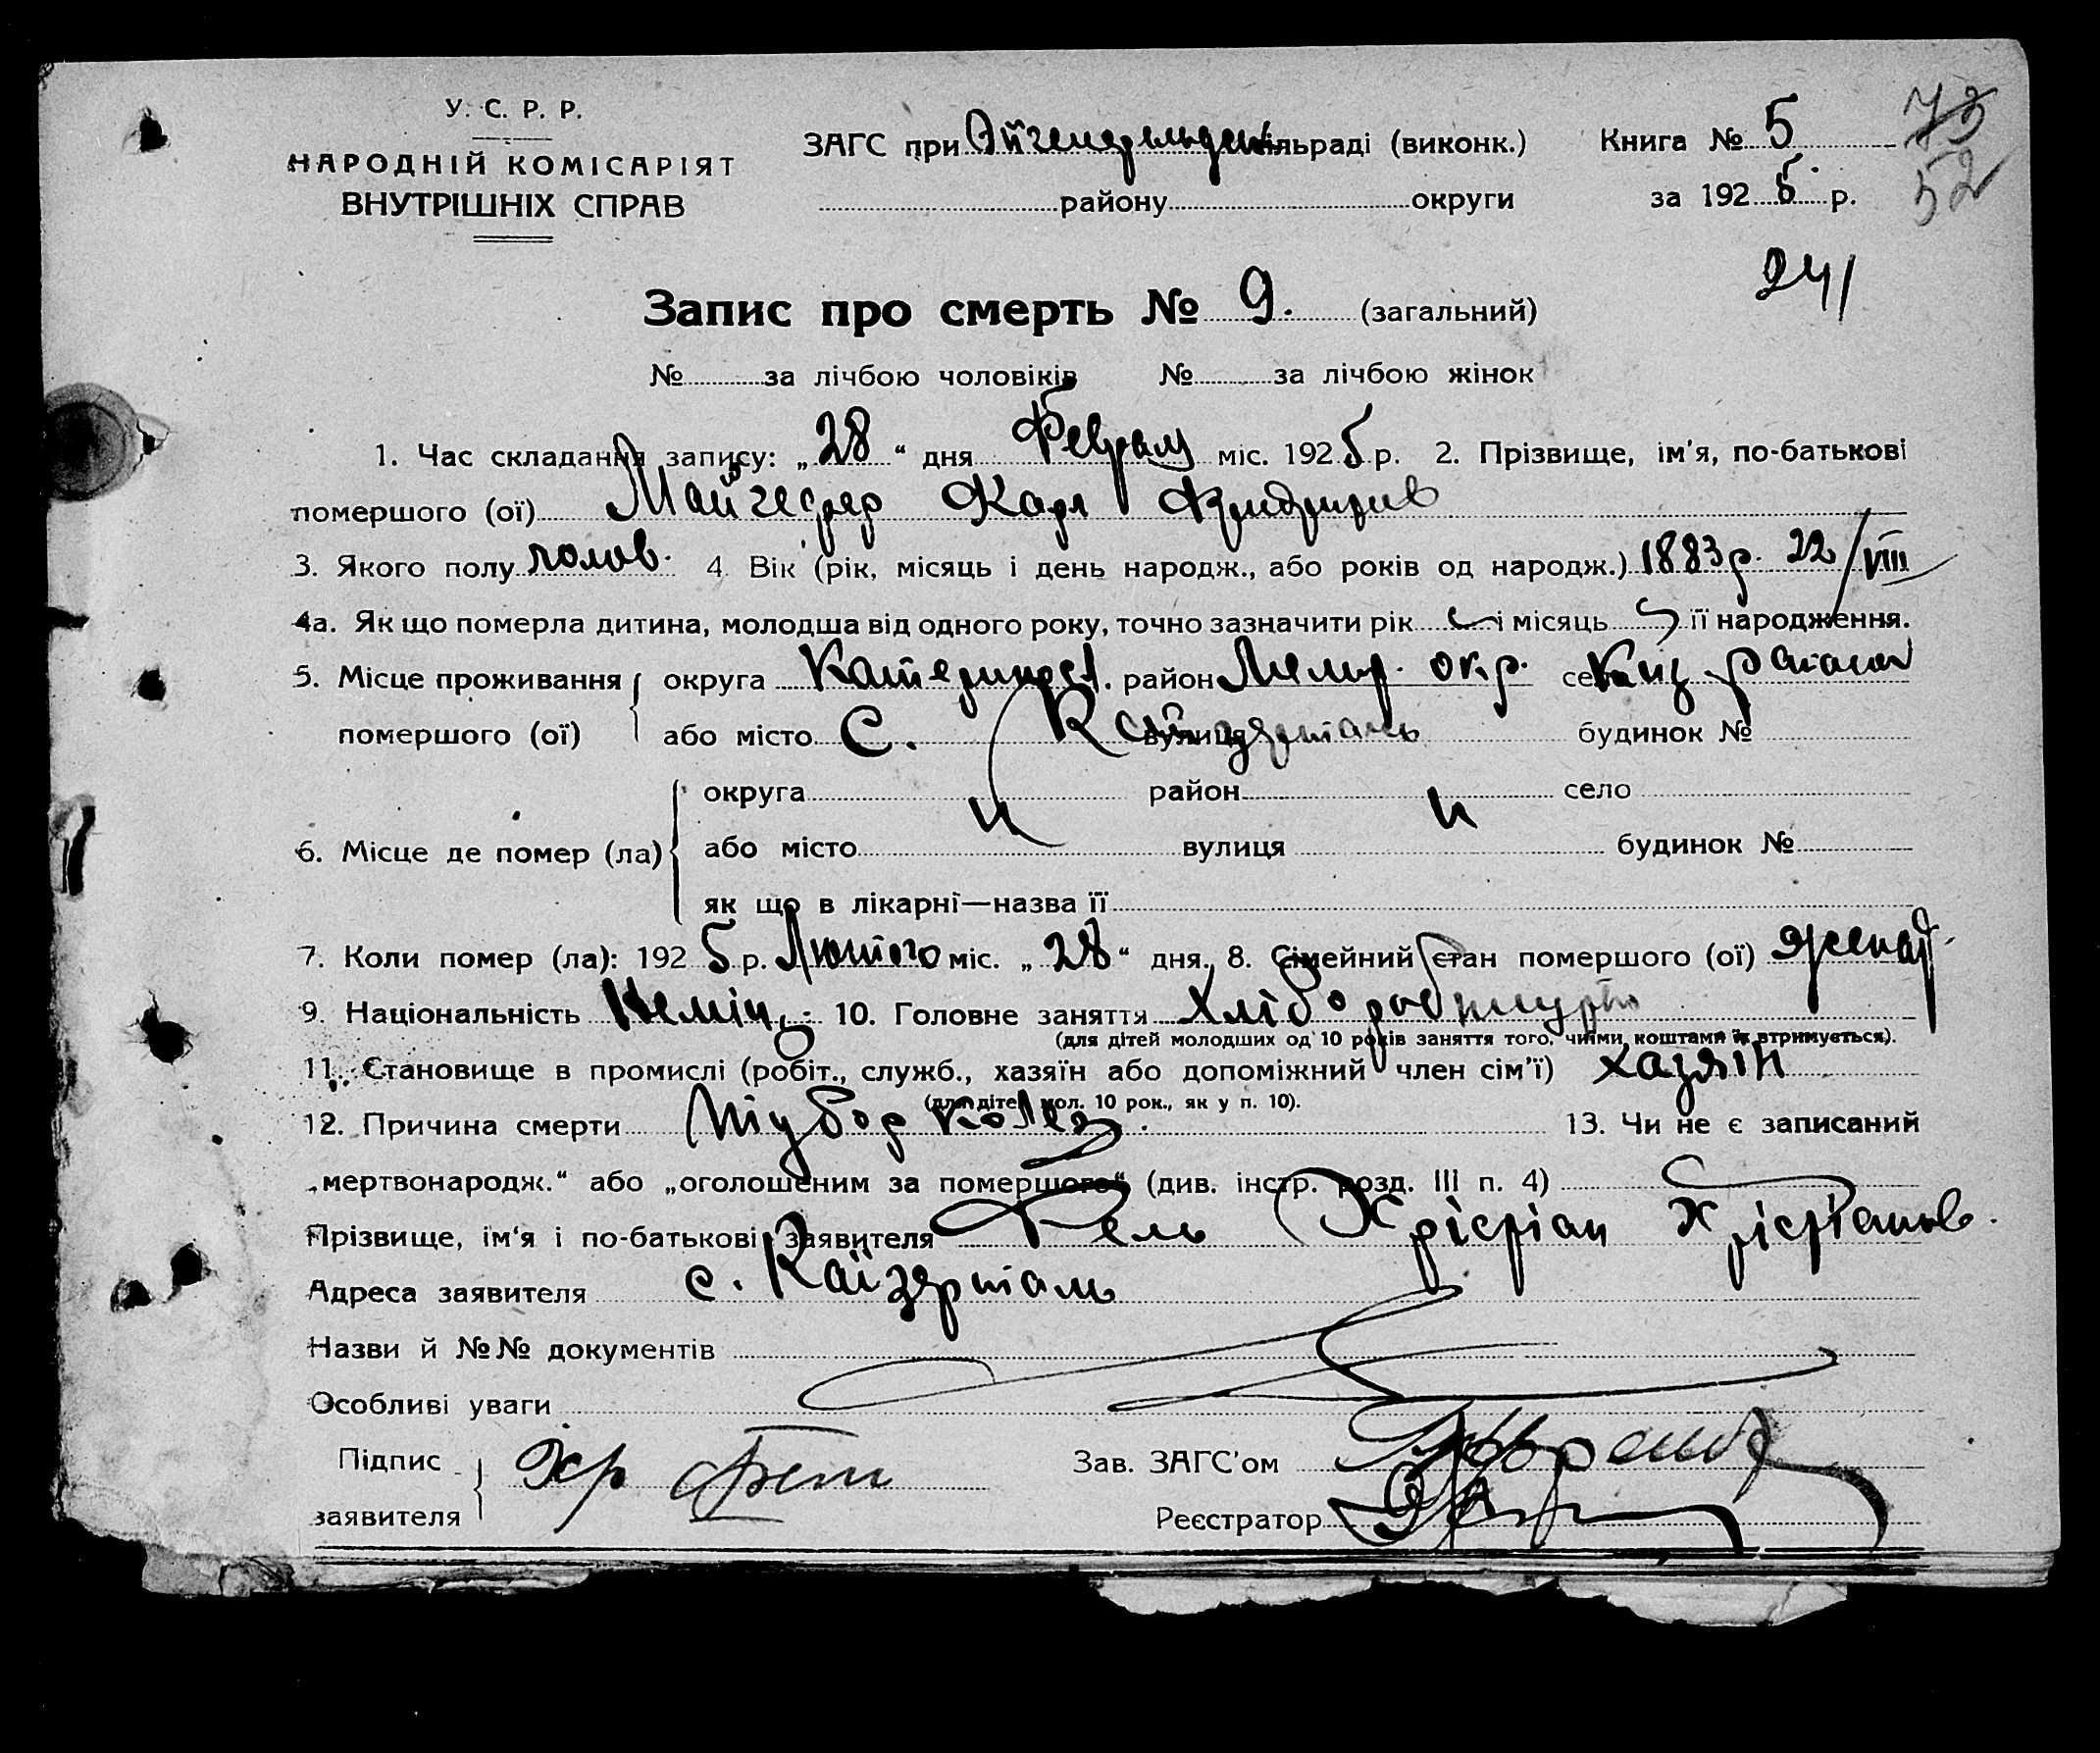 У. С. Р. Р.
НАРОДНІЙ КОМІСАРІЯТ
ВНУТРІШНІХ СПРАВ
ЗАГС при Ейгенфельден сільраді (виконк.)
району округи
Книга № 5
за 1925 р.
73
52
241
Запис про смерть № 9. (загальний)
№ за лічбою чоловіків № за лічбою жінок
1. Час складання запису: „28“ дня Февраля міс. 1925 р. 2. Прізвище, ім'я, по-батькові
помершого (ої) Карл
3. Якого полу чолов. 4. Вік (рік, місяць і день народж., або років од народж.) 1883 р. 22/VIII
4а. Як що померла дитина, молодша від одного року, точно зазначити рік і місяць її народження.
5. Місце проживання округа район окр. село
помершого (ої) або місто с. Кайзерталь вулиця будинок №
6. Місце де помер (ла) округа район село
або місто вулиця будинок №
як що в лікарні—назва її
7. Коли помер (ла): 1925 р. Лютого міс. „28“ дня. 8. Сімейний стан помершого (ої) женат.
9. Національність Немец. 10. Головне заняття
(для дітей молодших од 10 років заняття того, чиїми коштами їх втримується).
11. Становище в промислі (робіт., служб., хазяїн або допоміжний член сім'ї) хазяін
(для дітей мол. 10 рок., як у п. 10).
12. Причина смерти 13. Чи не є записаний
„мертвонародж.“ або „оголошеним за помершого“ (див. інстр. розд. III п. 4)
Прізвище, ім'я і по-батькові заявителя
Адреса заявителя с. Каїзерталь
Назви й №№ документів
Особливі уваги
Підпис
заявителя
Зав. ЗАГС'ом
Реєстратор